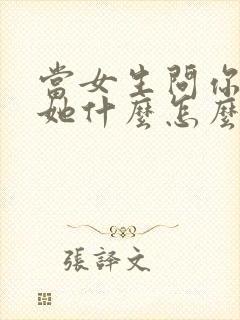 當女生問你
她什麼怎麼
張譯文